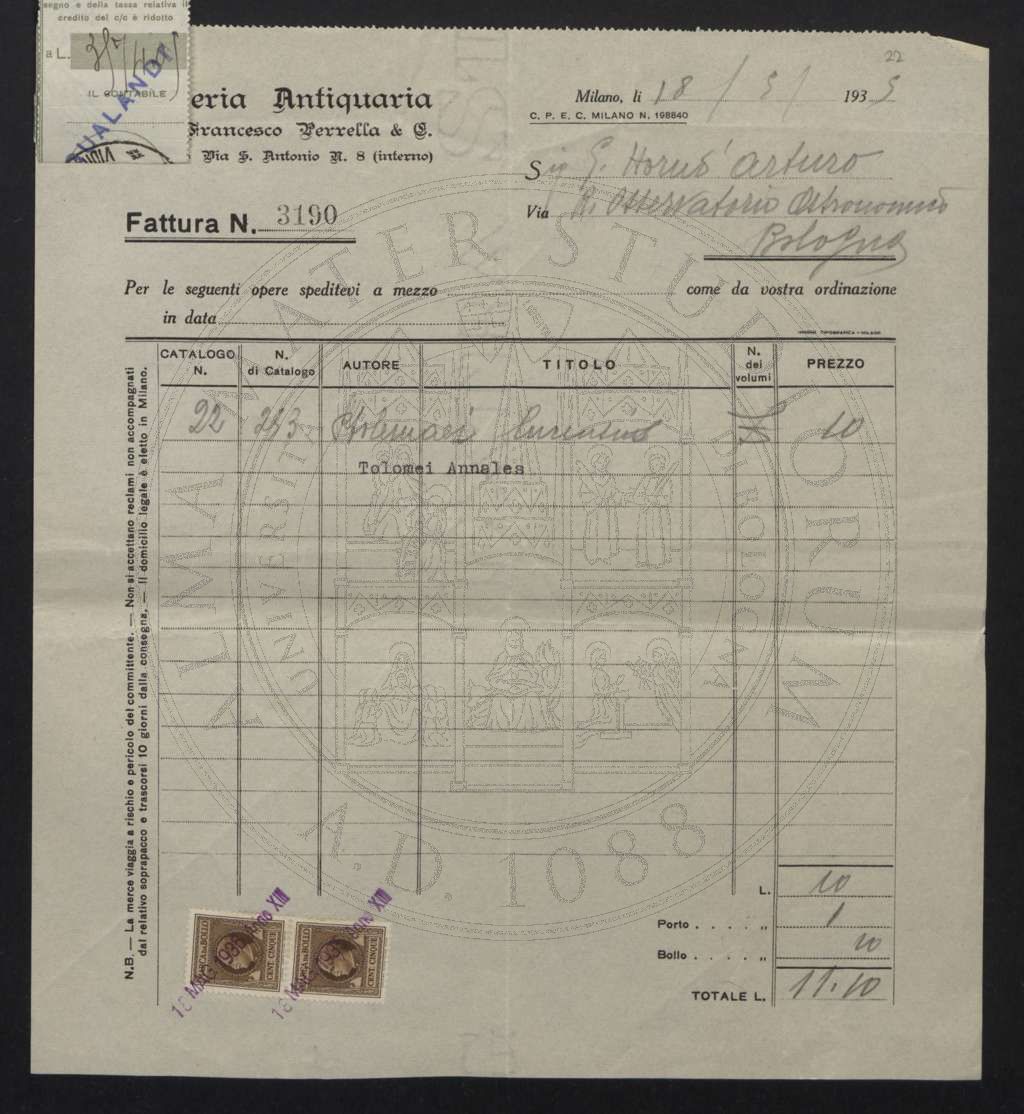 segno e della tassa relativa il
credito del c/c è ridotto
a L.
IL CONTABILE
22
eria Antiquaria
Francesco Perrella & C.
Via S. Antonio N. 8 (interno)
Milano, li 18 / 5 / 1935
C. P. E. C. MILANO N. 198840
Sig G. Horn d'Arturo
Via R. Osservatorio Astronomico
Bologna
Fattura N. 3190
Per le seguenti opere speditevi a mezzo come da vostra ordinazione
in data
CATALOGO N. N. di Catalogo AUTORE TITOLO N. dei volumi PREZZO
22 Ptolemaei 10
Tolomei Annales
L. 10
Porto . . . . „ 1
Bollo . . . . „ 10
TOTALE L. 11.10
N.B. — La merce viaggia a rischio e pericolo del committente. — Non si accettano reclami non accompagnati
dal relativo soprapacco e trascorsi 10 giorni dalla consegna. — Il domicilio legale è eletto in Milano.
MARCA DA BOLLO
CENT. CINQUE
MARCA DA BOLLO
CENT. CINQUE
18 MAG 1935 Anno XIII
18 MAG 1935 Anno XIII
ALMA MATER STUDIORUM
UNIVERSITÀ DI BOLOGNA
A.D. 1088